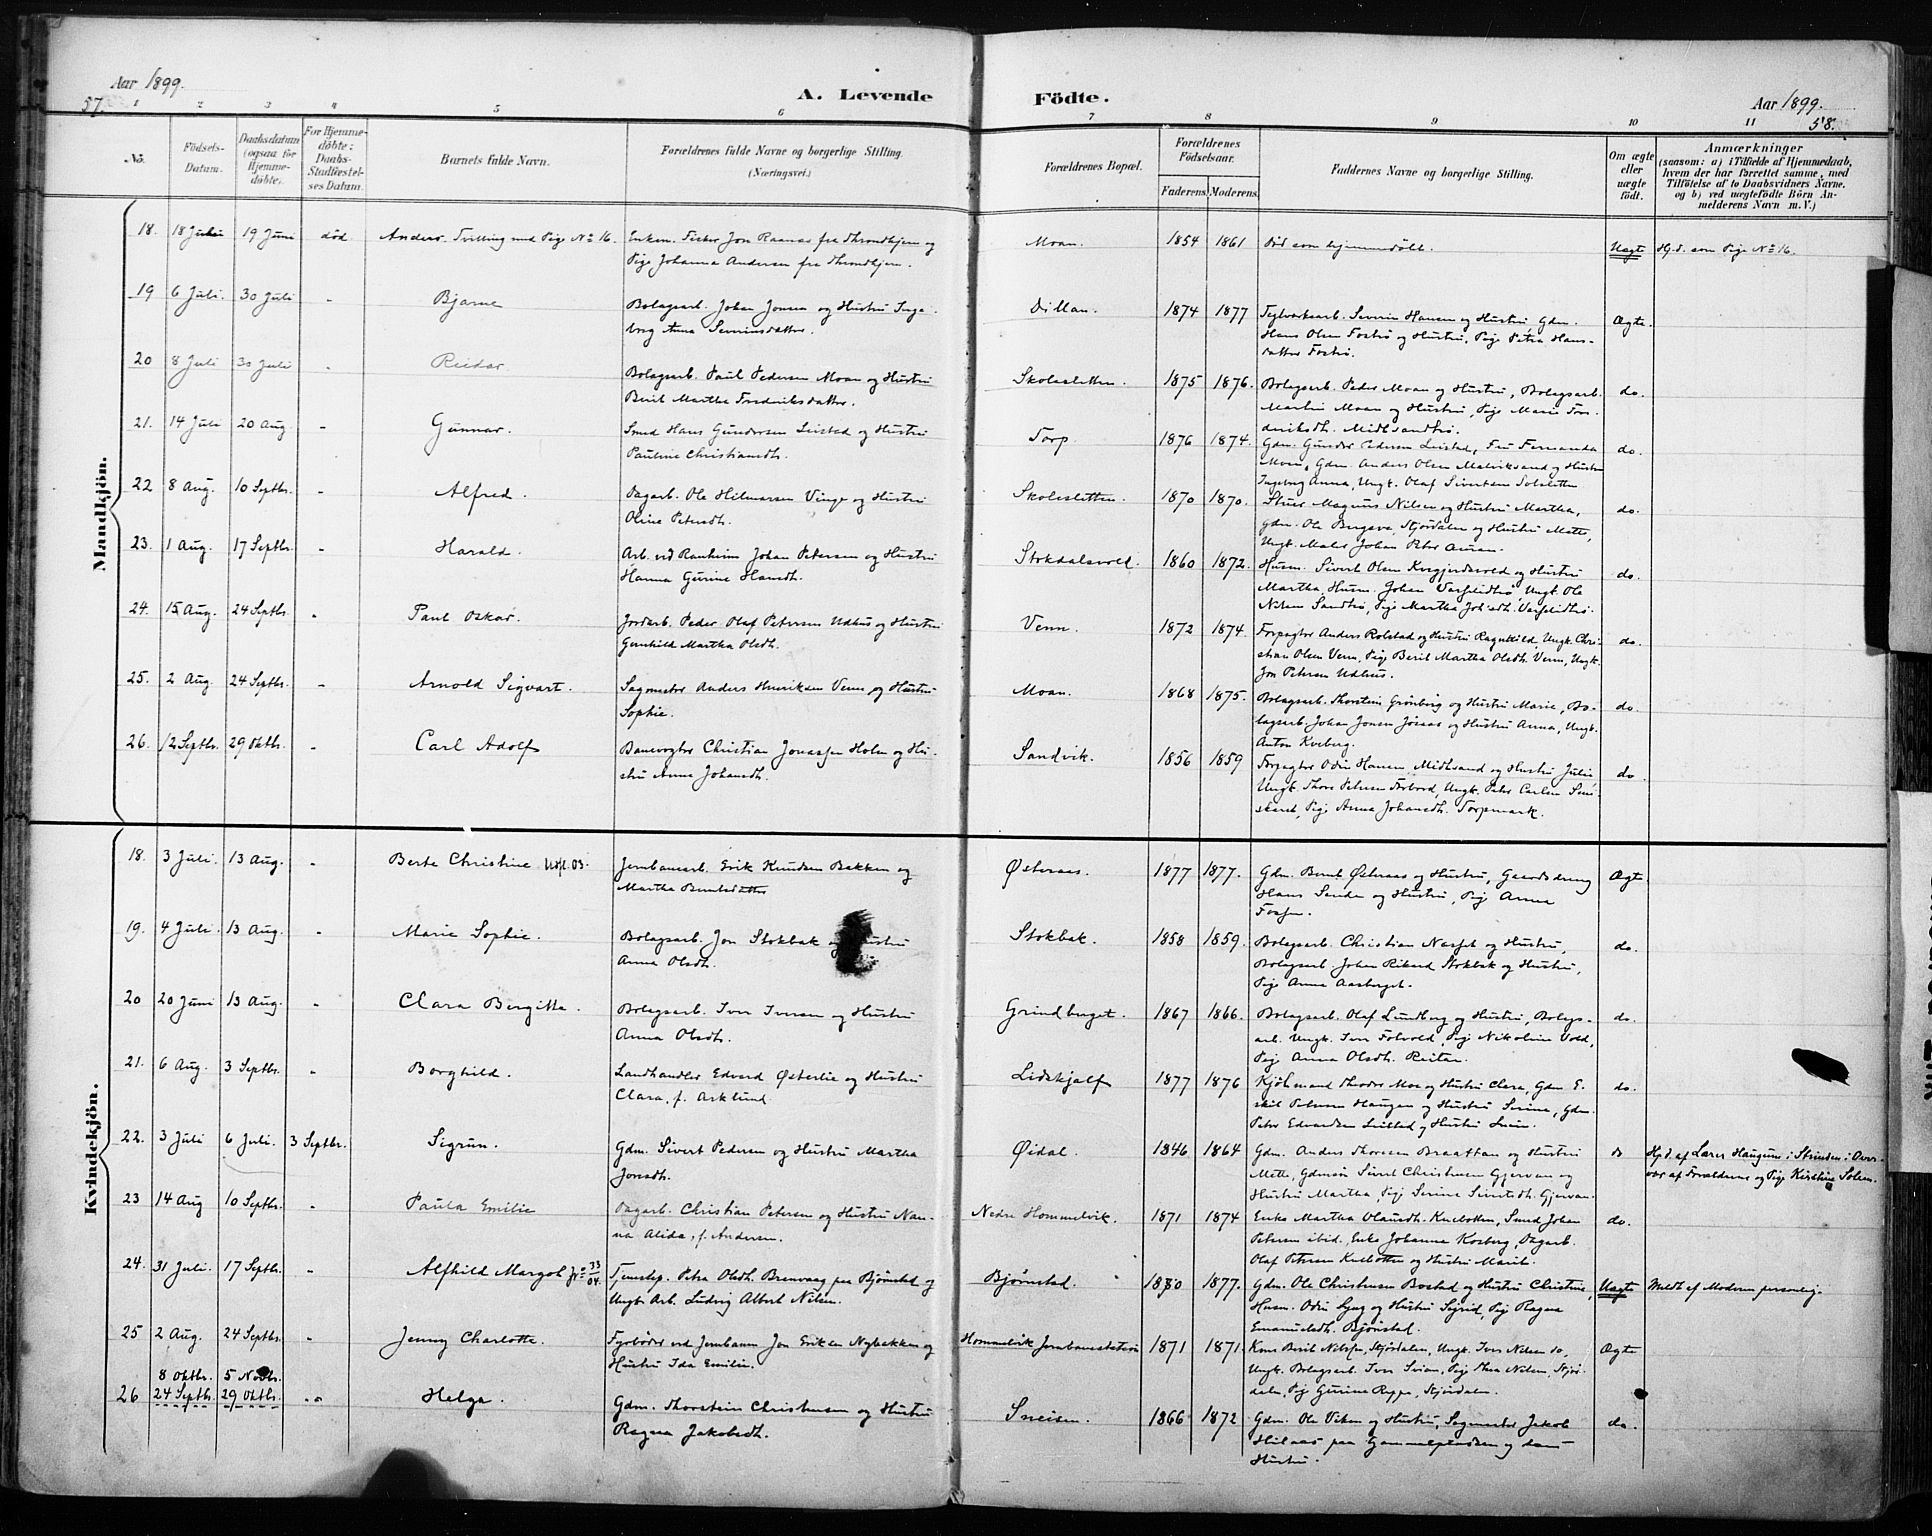 Aar 1899.
57.
A. Levende
Födte.
Aar 1899.
58.
1 2 3 4 5 6 7 8 9 10 11
No.
Födsels-
Datum.
Daabsdatum
(ogsaa for
Hjemme-
döbte).
For Hjemme-
döbte:
Daabs-
Stadfæstel-
ses Datum.
Barnets fulde Navn.
Forældrenes fulde Navne og borgerlige Stilling.
(Næringsvei.)
Forældrenes Bopæl.
Forældrenes
Födselsaar.
Faderens.
Moderens.
Faddernes Navne og borgerlige Stilling.
Om ægte
eller
uægte
födt.
Anmærkninger
(saasom: a) i Tilfælde af Hjemmedaab,
hvem der har forrettet samme, med
Tilföielse af to Daabsvidners Navne.
og b) ved uægtefödte Börn An-
melderens Navn m. V.)
Mandkjön.
18. 18 Juni 19 Juni död Anders. Tvilling med Pige No 16. Enkem. Fisker Jon Raanas fra Throndhjem og
Pige Johanna Andersen fra Throndhjem.
Moan. 1854 1861 Död som hjemmedöbt. Uægte Hj.d. som Pige No 16.
19 6 Juli 30 Juli - Bjarne Bolagsarb. Johan Jonsen og Hustru Inge-
borg Anna Severinsdatter.
Dillan. 1874 1877 Teglværksarb. Severin Hansen og Hustru Gdm.
Hans Olsen Foströ og Hustru, Pige Petra Hans-
datter Foströ.
Ægte.
20 8 Juli 30 Juli - Reidar Bolagsarb. Paul Pedersen Moan og Hustru
Beril Martha Frederiksdatter.
Skolesletten. 1875 1876. Bolagsarb. Peder Moan og Hustru, Bolagsarb.
Martin Moan og Hustru, Pige Marie Fre-
deriksdh. Midtsandtrö.
do.
21. 14 Juli 20 Aug - Gunnar. Smed Hans Gundersen Leistad og Hustru
Pauline Christiansdh.
Torp. 1876 1874. Gdm. Gunder Pedersen Leistad, Fru Fernanda
Moan, Gdm. Anders Olsen Malviksand og Hustru
Ingeborg Anna, Ungk. Olaf Sivertsen Solsletten
do.
22 8 Aug. 10 Septbr. - Alfred. Dagarb. Ole Hilmarsen Vinge og Hustru
Oline Petersdh.
Skolesletten. 1870 1870. Stuer Magnus Nilsen og Hustru Martha,
Gdm. Ole Bergsve, Stjördalen og Hustru Mette,
Ungk. Maler Johan Peter Auran.
do.
23. 1 Aug. 17 Septbr. - Harald. Arb. ved Ranheim Johan Petersen og Hustru
Hanna Gurine Hansdh.
Stokdalsvold. 1860 1872. Husm. Sivert Olsen Kvegjerdsvold og Hustru
Martha, Husm. Johan Varslidtrö, Ungk. Ole
Nilsen Sandtrö, Pige Martha Joh'sdh. Varslidtrö.
do.
24. 15 Aug. 24 Septbr. - Paul Oskar. Jordarb. Peder Olaf Petersen Udhus og Hustru
Gunhild Martha Olsdh.
Venn. 1872 1874. Forpagter Anders Rolstad og Hustru Ragnhild, Ungk. Chri-
stian Olsen Venn, Pige Beril Martha Olsdh. Venn, Ungk.
Jon Petersen Udhus.
do.
25. 2 Aug. 24 Septbr. - Arnold Sigvart. Sagmester Anders Henriksen Venn og Hustru
Sophie.
Moan. 1868 1875. Bolagsarb. Thorstein Grönberg og Hustru Marie, Bo-
lagsarb. Johan Jonsen Josaas og Hustru Anna, Ungk.
Anton Kveberg.
do.
26. 12 Septbr. 29 Oktbr. - Carl Adolf Banevogter Christian Jonassen Holm og Hu-
stru Anne Johansdh.
Sandvik. 1856 1859 Forpagter Odin Hansen Midtsand og Hustru Julie
Ungk. Thore Petersen Forbord, Ungk. Peter Carlsen
Pige Anna Johansdh. Torpmark.
do.
Kvindekjön.
18. 3 Juli. 13 Aug. - Berte Christine Udfl. 03. Jernbanearb. Erik Knudsen Bakken og
Martha Berntsdatter
Østeraas. 1877 1877. Gdm. Bernt Østeraas og Hustru, Gaardsdreng
Hans Sende og Hustru, Pige Anna
Fossen.
Ægte.
19. 4 Juli. 13 Aug. - Marie Sophie. Bolagsarb. Jon Stokbak og Hustru
Anna Olsdh.
Stokbak. 1858 1859. Bolagsarb. Christian Næsset og Hustru,
Bolagsarb. Johan Rikard Stokbak og Hustru,
Pige Anna Aasberget.
do.
20 20 Juni 13 Aug. - Clara Bergitte. Bolagsarb. Iver Iversen og Hustru
Anna Olsdh.
Grindberget. 1867 1866. Bolagsarb. Olaf Lundberg og Hustru, Bolags-
arb. Ungk. Iver Folvold, Pige Nikoline Vold,
Pige Anna Olsdh. Reitan.
do.
21. 6 Aug. 3 Septbr. - Borghild. Landhandler Edvard Østerlie og Hustru
Clara, f. Asklund.
Lidskjalf 1877 1876 Kjöbmand Theodor Moe og Hustru Clara, Gdm. E-
skil Petersen Haugan og Hustru Serine, Gdm.
Peter Edvardsen Leistad og Hustru
do.
22. 3 Juli 6 Juli. 3 Septbr. Sigrun. Gdm. Sivert Pedersen og Hustru Martha
Jonsdh.
Øidal. 1846 1864 Gdm. Anders Thoresen Braattan og Hustru
Mette, Gdmsön Sivert Christensen Gjervan og
Hustru Martha, Pige Serine Sivertsdh. Gjervan.
do Hj.d. af Lærer Haugum i Strinden i Over-
vær af Forældrene og Pige Kirstine Solem.
23 14 Aug 10 Septbr. - Paula Emilie Dagarb. Christian Petersen og Hustru Nan-
na Alida, f. Andersen.
Nedre Hommelvik. 1871 1874 Enke Martha Olausdh. Knebotten, Smed Johan
Petersen ibid. Enke Johanna Kosberg, Dagarb.
Olaf Petersen Knebotten og Hustru Marit.
do.
24. 31 Juli. 17 Septbr. - Alfhild Margot Tjenstep. Petra Olsdh. Brenvang paa Bjørnstad og
Ungk. Arb. Ludvig Albert Nilsen.
Bjørnstad. 1880 1877. Gdm. Ole Christensen Bostad og Hustru Christine,
Husm. Odin Ljug og Hustru Sigrid, Pige Ragna
Emanuelsdh. Bjørnstad.
Uægte Meldt af Moderen personlig.
25 2 Aug. 24 Septbr. - Jenny Charlotte. Fyrböder ved Jernbanen Jon Eriksen Nybakken og
Hustru Ida Emilie.
Hommelvik Jernbanestation 1871 1871. Kone Beril Nilsen, Stjördalen, Ungk. Iver Nilsen do,
Ungk. Bolagsarb. Iver Svian, Pige Thea Nilsen, Stjör-
dalen, Pige Gurine Reppe, Stjördalen.
Ægte
8 Oktbr. 5 Novbr.
26 24 Septbr. 29 Oktbr. - Helga. Gdm. Thorstein Christensen og Hustru
Ragna Jakobsdh.
Sneisen. 1866 1872 Gdm. Ole Viken og Hustru, Sagmester Jakob
Hilaas paa Gammelpladsen og dennes
Hustru.
do.